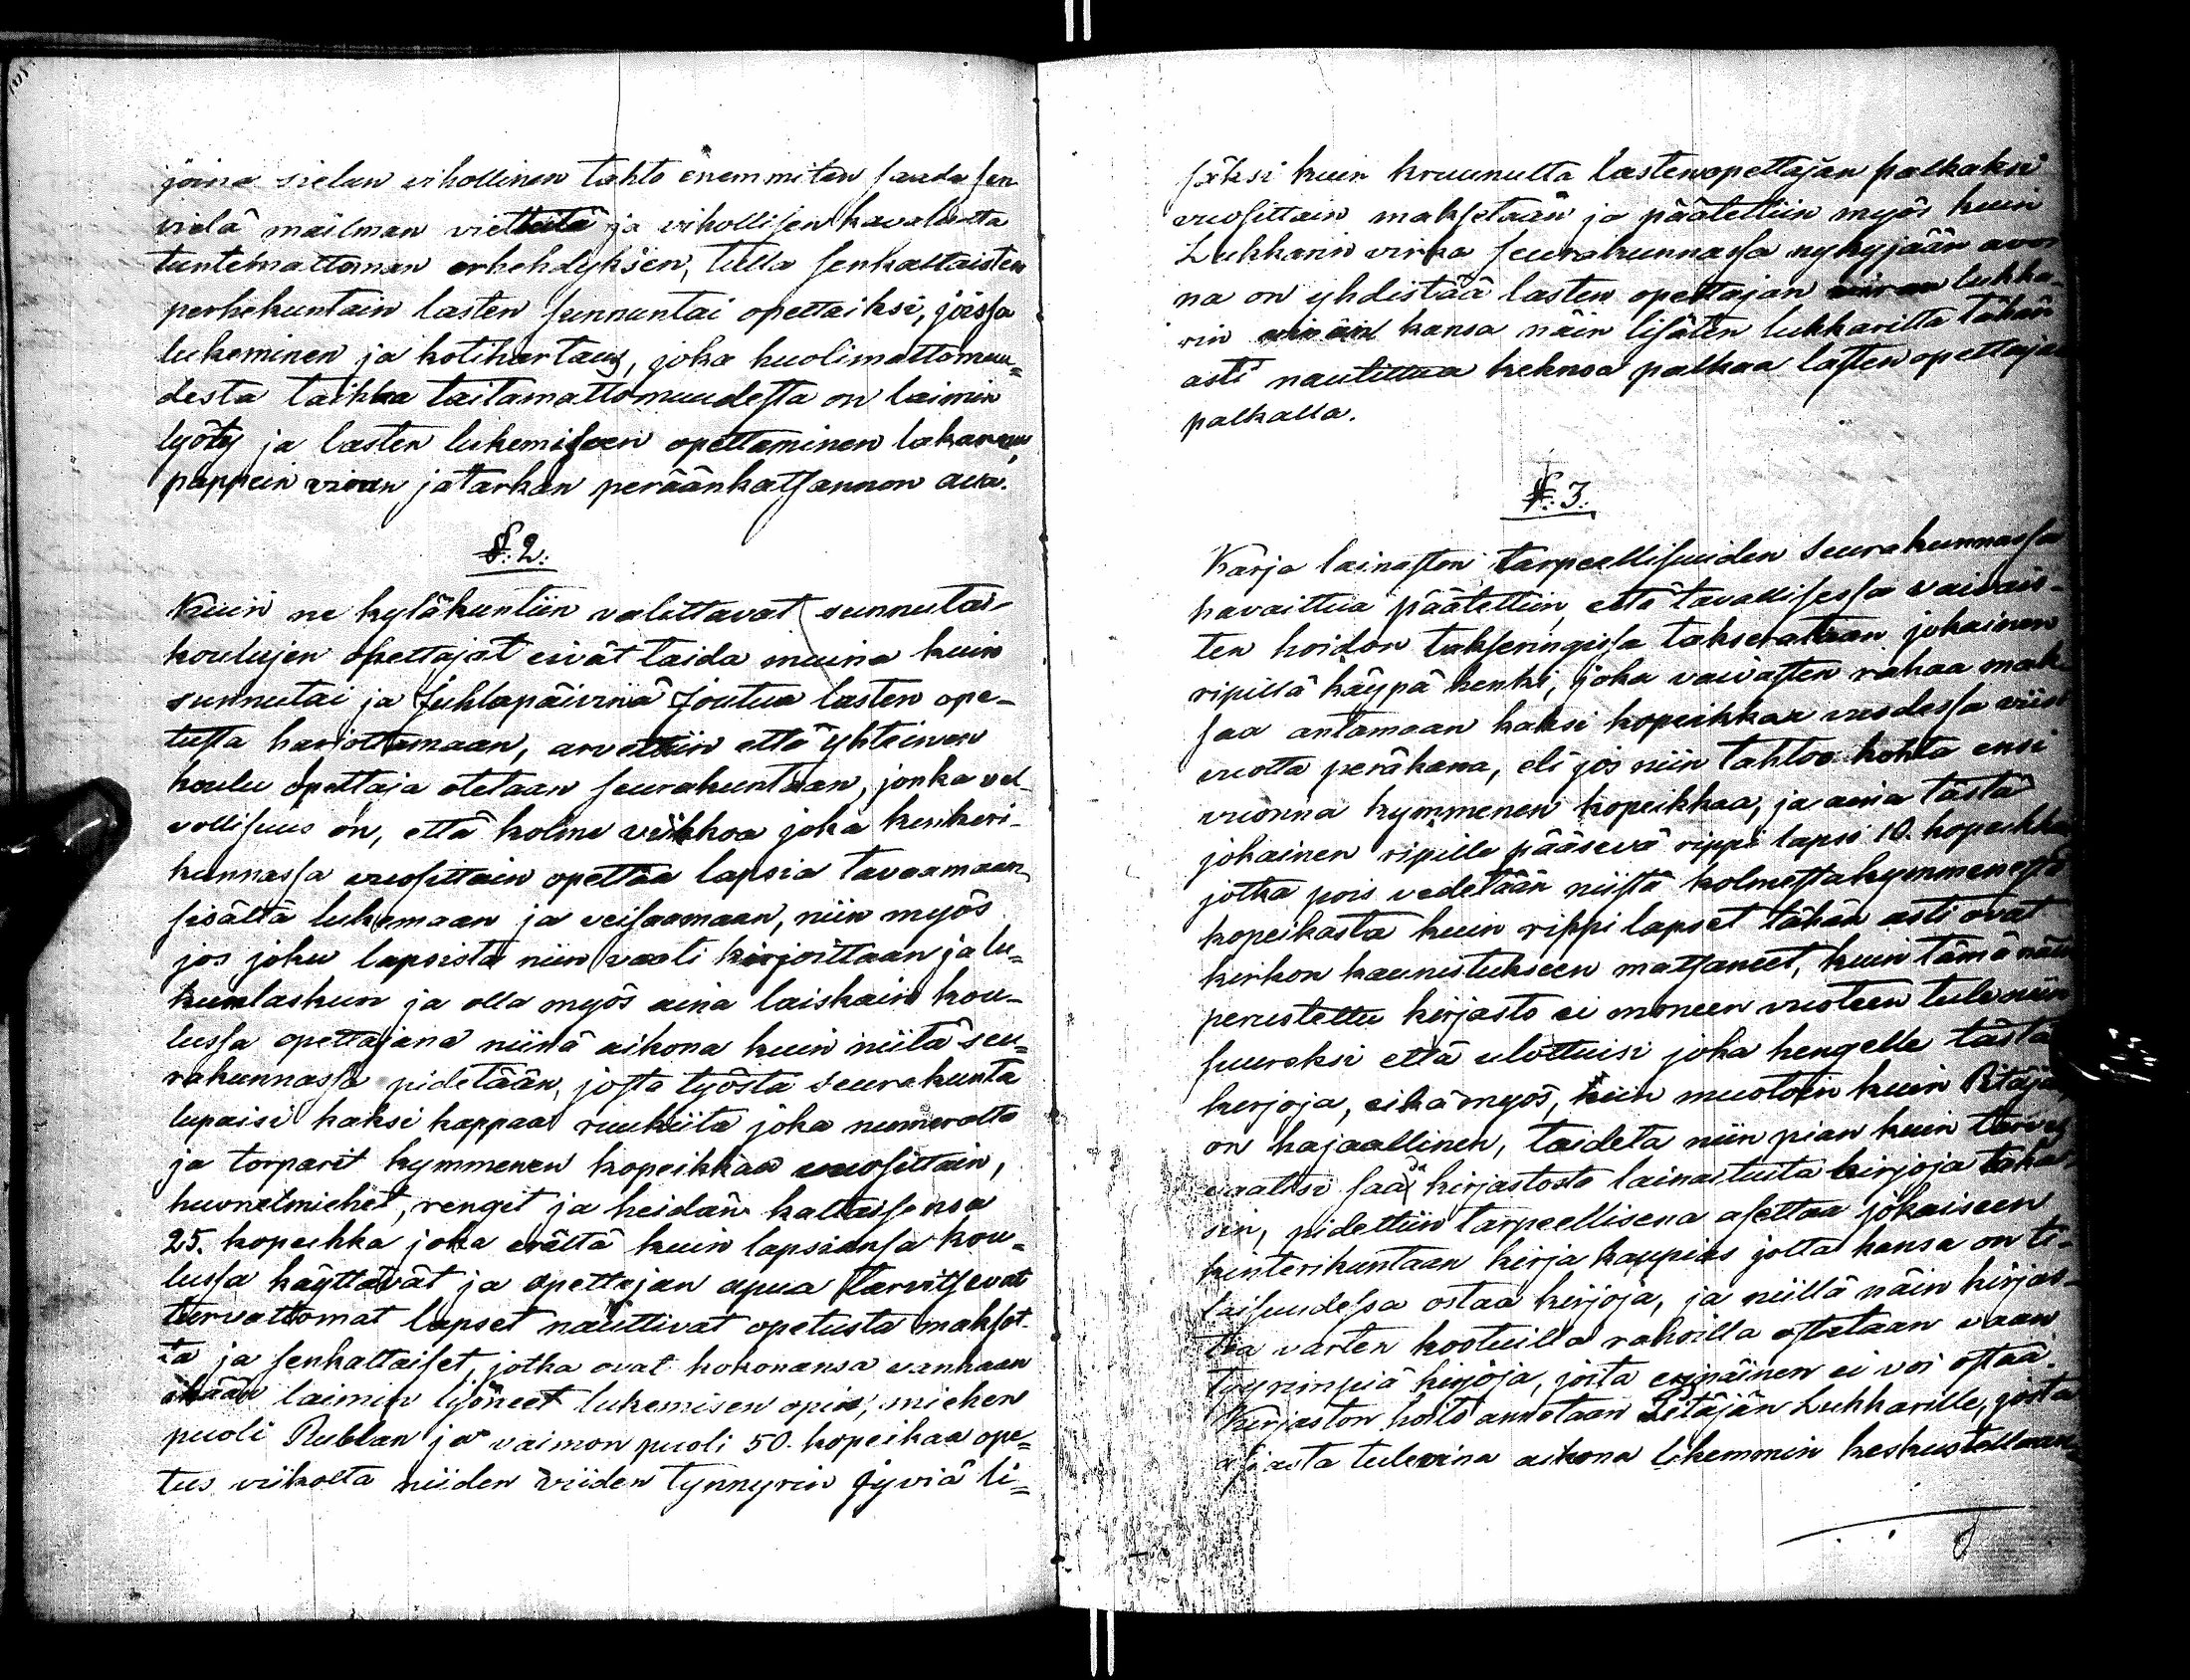 joina sielun vihollinen tahto enemmiten saada sen
vielä mailman viettestä ja vihollisen kavaluutta
tuntemattoman erhehdyksiin, tulla senkaltaisten
perhekuntain lasten sunnuntai opettaiksi, joissa
lukeminen ja kotihartaus, joka huolimattomuu-
desta taikka taitamattomuudesta on laimin
lyöty ja lasten lukemiseen opettaminen lakannu,
pappein viran ja tarkan peräänkatsannon alla.
§. 2.
Kuin ne kyläkuntiin valittavat sunnutai-
koulujen opettajat eivät taida muina kuin
sunnutai ja Juhlapäivinä joutua lasten ope-
tusta harjottamaan, arveltiin että yhteinen
koulu opettaja otetaan seurakuntaan, jonka vel-
vollisuus on, että kolme viikkoa joka kinkeri-
kunnassa vuosittain opettaa lapsia tavaamaan
sisältä lukemaan ja veisaamaan, niin myös
jos joku lapsista niin vaati kirjoittaan ja lu-
kunlaskun ja olla myös aina laiskain kou-
lussa opettajana niinä aikona kuin niitä seu-
rakunnassa pidetään, josta työstä seurakunta
lupaisi kaksi kappaa ruukiita joka numerolta
ja torparit kymmenen kopeikkaa vuosittain,
huonelmiehet, rengit ja heidän kaltaisensa
25. kopeikka joka erältä kuin lapsiansa kou-
lussa käyttävät ja opettajan apua tarvitsevat
turvattomat lapset nauttivat opetusta maksot-
ta ja senkaltaiset, jotka ovat kokonansa vanhaan
ikään laimin lyöneet lukemisen opin, miehen
puoli Rublan ja vaimon puoli 50. kopeikaa ope-
tus viikolta niiden viiden tynnyrin Jyviä li-
säksi kuin kruunulta lastenopettajan palkaksi
vuosittain maksetaan ja päätettiin myös kuin
Lukkarin virka seurakunnassa nykyjään avoi
na on yhdistää lasten opettajan viran lukka-
rin kansa näin lisäten lukkarilta tähän
asti nautittua kehnoa palkaa lasten opettajan
palkalla.
§. 3.
Karja lainaston tarpeellisuuden Seurakunnassa
havaittua päätettiin, että tavallisessa vaivais-
ten hoidon takseringissa takserataan jokainen
ripillä käypä henki, joka vaivasten rahaa mak-
saa antamaan kaksi kopeikkaa vuodessa viisi
vuotta peräkana, eli jos niin tahtoo kohta ensi
vuonna kymmenen kopeikkaa, ja aina tästä
johainen ripille pääsevä rippi lapsi 10. kopeikka
jotka pois vedetään niistä kolmestakymmenestä
kopeikasta kuin rippi lapset tähän asti ovat
kirkon kaunistukseen matsaneet, kuin tämä näin
perustettu kirjasto ei moneen vuoteen tule niin
suureksi että ulottuisi joka hengelle tästä
kirjoja, eikä myös, niin muotoin kuin Pitäjä
on hajaallinen, taideta niin pian kuin tarve
vaatisi saa kirjastosta lainattuita kirjoja taka-
sin, pidettiin tarpeellisena asettaa jokaiseen
kinterikuntaan kirja kaupias jolta kansa on ti-
laisuudessa ostaa kirjoja, ja niillä näin kirjas-
toa varten kootuilla rahoilla ostetaan vaan
tyyrimpiä kirjoja, joita eripäinen ei voi ostaa.
Kirjaston hoito annetaan Pitäjän Lukkarille, josta
asiasta tulevina aikona likemmin keskustellaan